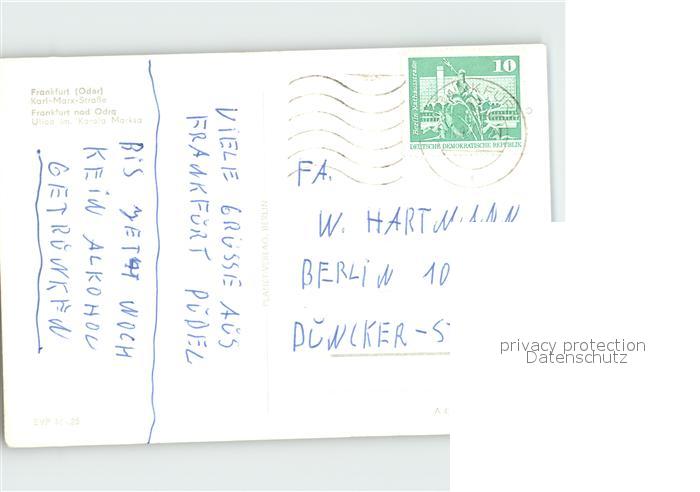 Frankfurt (Oder)
Karl-Marx-Straße
Frankfurt nad Odrą
Ulica im. Karola Marksa
VIELE GRÜSSE AUS
FRANKFURT PUDEL
BIS JETZT NOCH
KEIN ALKOHOL
GETRUNKEN
PLANET-VERLAG, BERLIN
10
Berlin, Rathausstraße
DEUTSCHE DEMOKRATISCHE REPUBLIK
FRANKFURT
FA.
W. HARTMANN
BERLIN 10
DÜNCKER-S
privacy protection
Datenschutz